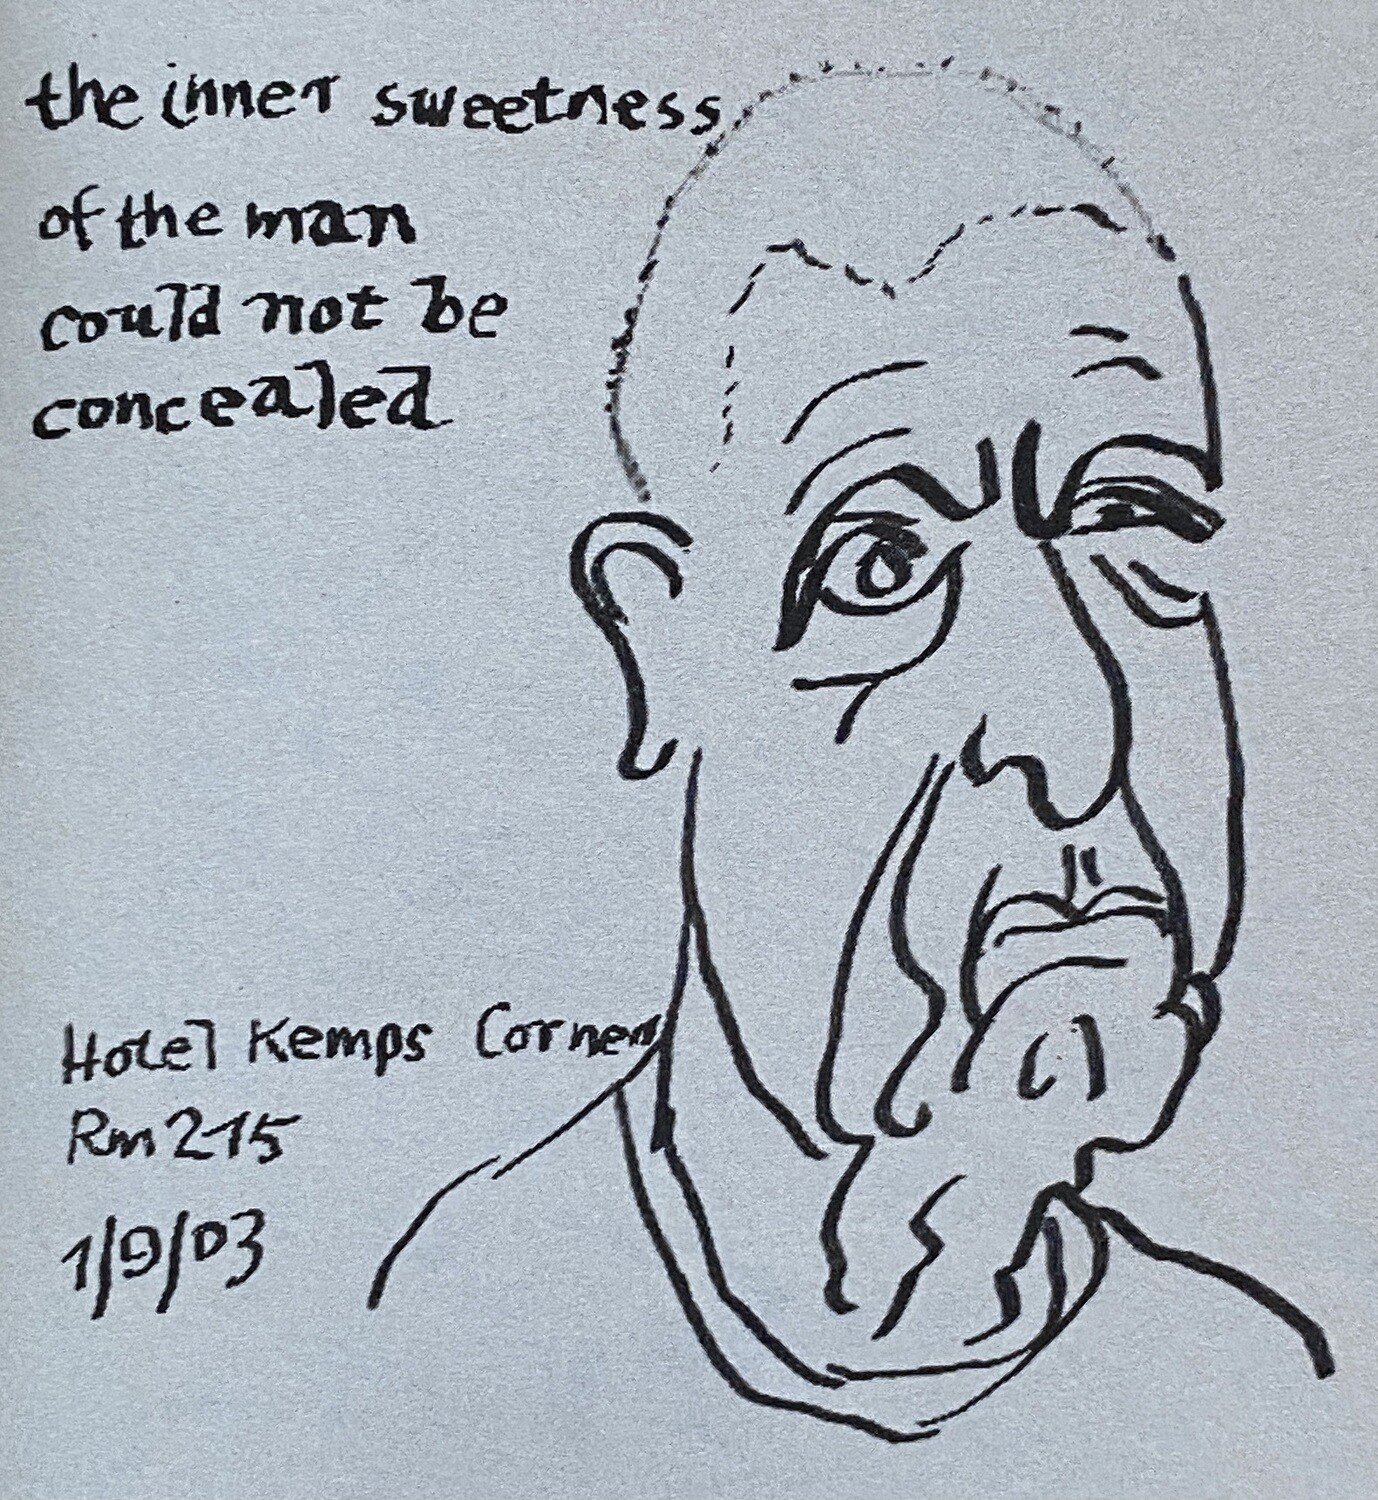 the inner sweetness
of the man
could not be
concealed
Hotel Kemps Corner
Rm 215
1/9/03